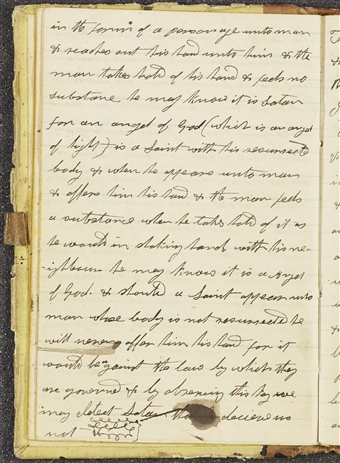 in the form of a personage unto man
& reaches out his hand unto him & the
man takes hold of his hand & feels no
substance he may know it is Satan
for an angel of God (which is an angel
of light) is a Saint with his resurrected
body & when he appears unto man
& offers him his hand & the man feels
a substance when he takes hold of it as
he would in shaking hands with his ne-
ighbour he may know it is a Angel
of God. & should a Saint appear unto
man whose body is not resurrected he
will never offer him his hand for it
would be against the law by which they
are governed & by observing this key we
may detect Satan that deceive us
not